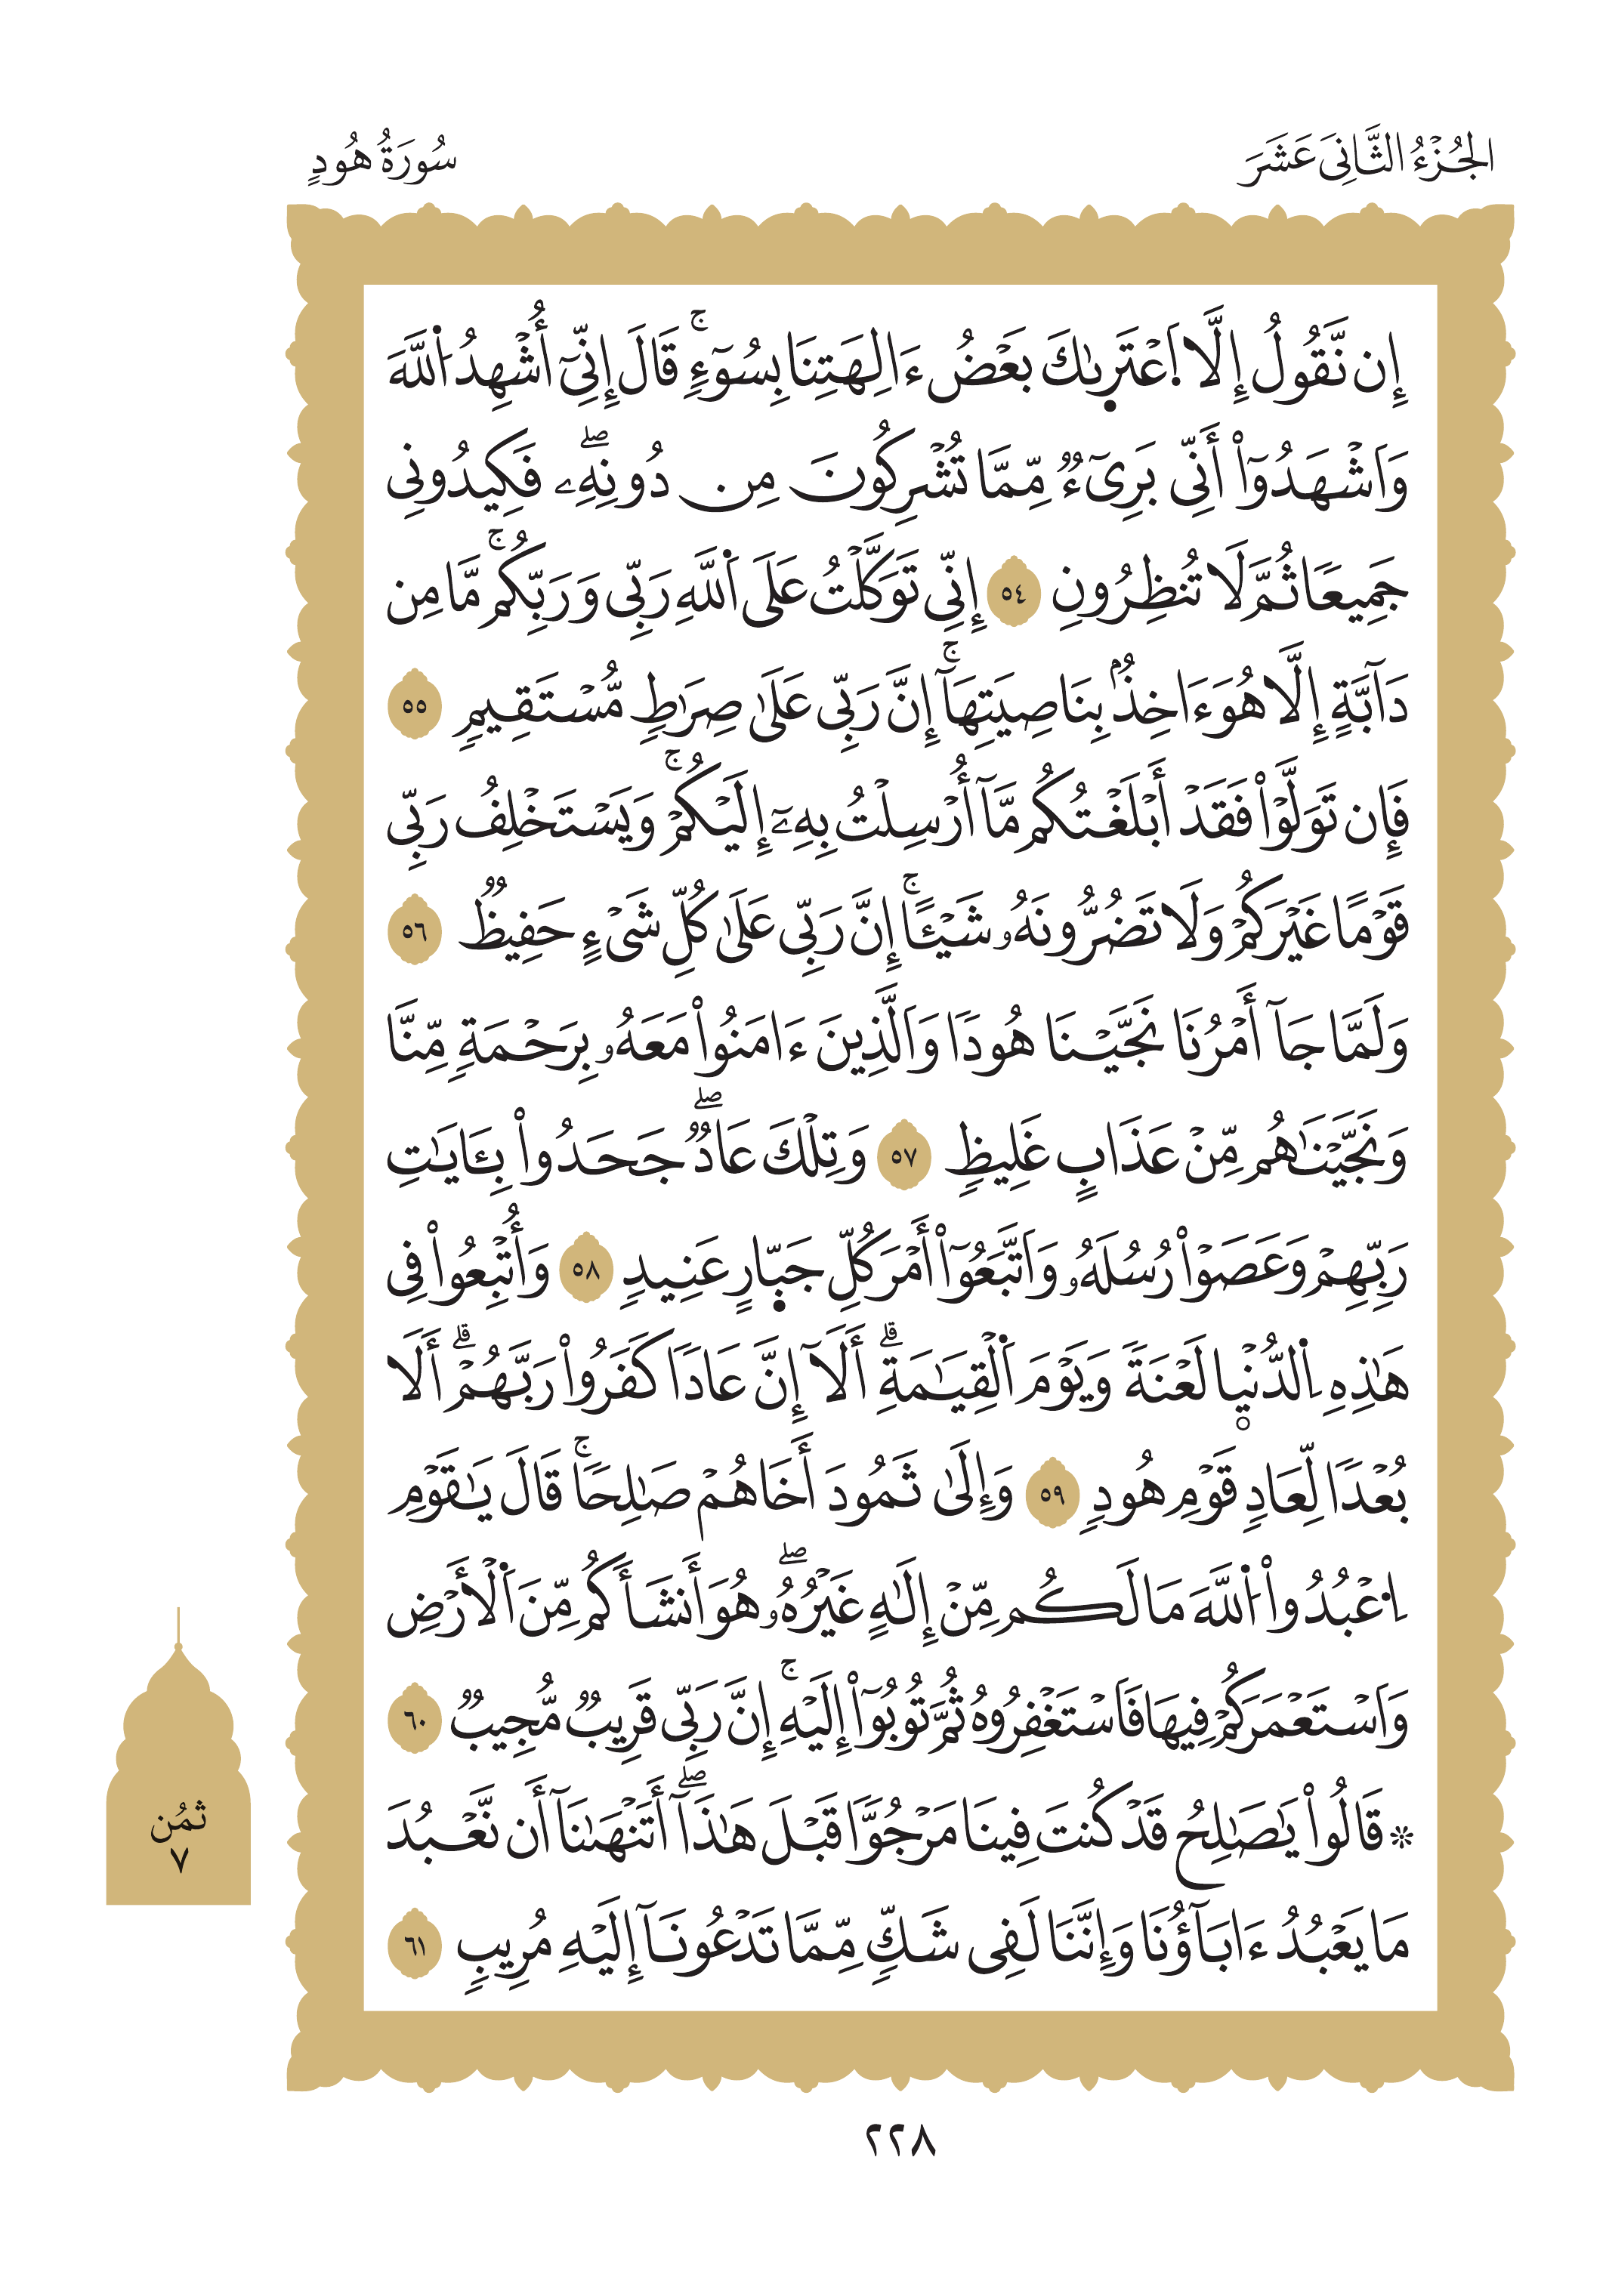 الجُزْءُ الثَّانِيَ عَشَرَ
سُورَةُ هُودٍ
إِن نَّقُولُ إِلَّا اَ۪عْتَر۪ىٰكَ بَعْضُ ءَالِهَتِنَا بِسُوٓءٖۚ قَالَ إِنِّيٓ أُشْهِدُ اُ۬للَّهَ
وَاَشْهَدُوٓاْ أَنِّي بَرِيٓءٞ مِّمَّا تُشْرِكُونَ مِن دُونِهِۦۖ فَكِيدُونِي
جَمِيعٗا ثُمَّ لَا تُنظِرُونِ ٥٤ إِنِّي تَوَكَّلْتُ عَلَى اَ۬للَّهِ رَبِّي وَرَبِّكُمۚ مَّا مِن
دَآبَّةٍ إِلَّا هُوَ ءَاخِذُۢ بِنَاصِيَتِهَآۚ إِنَّ رَبِّي عَلَىٰ صِرَٰطٖ مُّسْتَقِيمٖ ٥٥
فَإِن تَوَلَّوْاْ فَقَدْ أَبْلَغْتُكُم مَّآ أُرْسِلْتُ بِهِۦٓ إِلَيْكُمْۚ وَيَسْتَخْلِفُ رَبِّي
قَوْمًا غَيْرَكُمْ وَلَا تَضُرُّونَهُۥ شَيْـًٔاۚ إِنَّ رَبِّي عَلَىٰ كُلِّ شَيْءٍ حَفِيظٞ ٥٦
وَلَمَّا جَآ أَمْرُنَا نَجَّيْنَا هُودٗا وَاَلَّذِينَ ءَامَنُواْ مَعَهُۥ بِرَحْمَةٖ مِّنَّا
وَنَجَّيْنَٰهُم مِّنْ عَذَابٍ غَلِيظٖ ٥٧ وَتِلْكَ عَادٞۖ جَحَدُواْ بِـَٔايَٰتِ
رَبِّهِمْ وَعَصَوْاْ رُسُلَهُۥ وَاَتَّبَعُوٓاْ أَمْرَ كُلِّ جَبّ۪ارٍ عَنِيدٖ ٥٨ وَأُتْبِعُواْ فِي
هَٰذِهِ اِ۬لدُّنْي۪ا لَعْنَةٗ وَيَوْمَ اَ۬لْقِيَٰمَةِۗ أَلَآ إِنَّ عَادٗا كَفَرُواْ رَبَّهُمْۗ أَلَا
بُعْدٗا لِّعَادٖ قَوْمِ هُودٖ ٥٩ وَإِلَىٰ ثَمُودَ أَخَاهُمْ صَٰلِحٗاۚ قَالَ يَٰقَوْمِ
اِ۟عْبُدُواْ اُ۬للَّهَ مَا لَكُم مِّنْ إِلَٰهٍ غَيْرُهُۥۖ هُوَ أَنشَأَكُم مِّنَ اَ۬لْأَرْضِ
وَاَسْتَعْمَرَكُمْ فِيهَا فَاَسْتَغْفِرُوهُ ثُمَّ تُوبُوٓاْ إِلَيْهِۚ إِنَّ رَبِّي قَرِيبٞ مُّجِيبٞ ٦٠
۞ قَالُواْ يَٰصَٰلِحُ قَدْ كُنتَ فِينَا مَرْجُوّٗا قَبْلَ هَٰذَآۖ أَتَنْهَىٰنَآ أَن نَّعْبُدَ
مَا يَعْبُدُ ءَابَآؤُنَا وَإِنَّنَا لَفِي شَكّٖ مِّمَّا تَدْعُونَآ إِلَيْهِ مُرِيبٖ ٦١
ثمُن
٧
٢٢٨